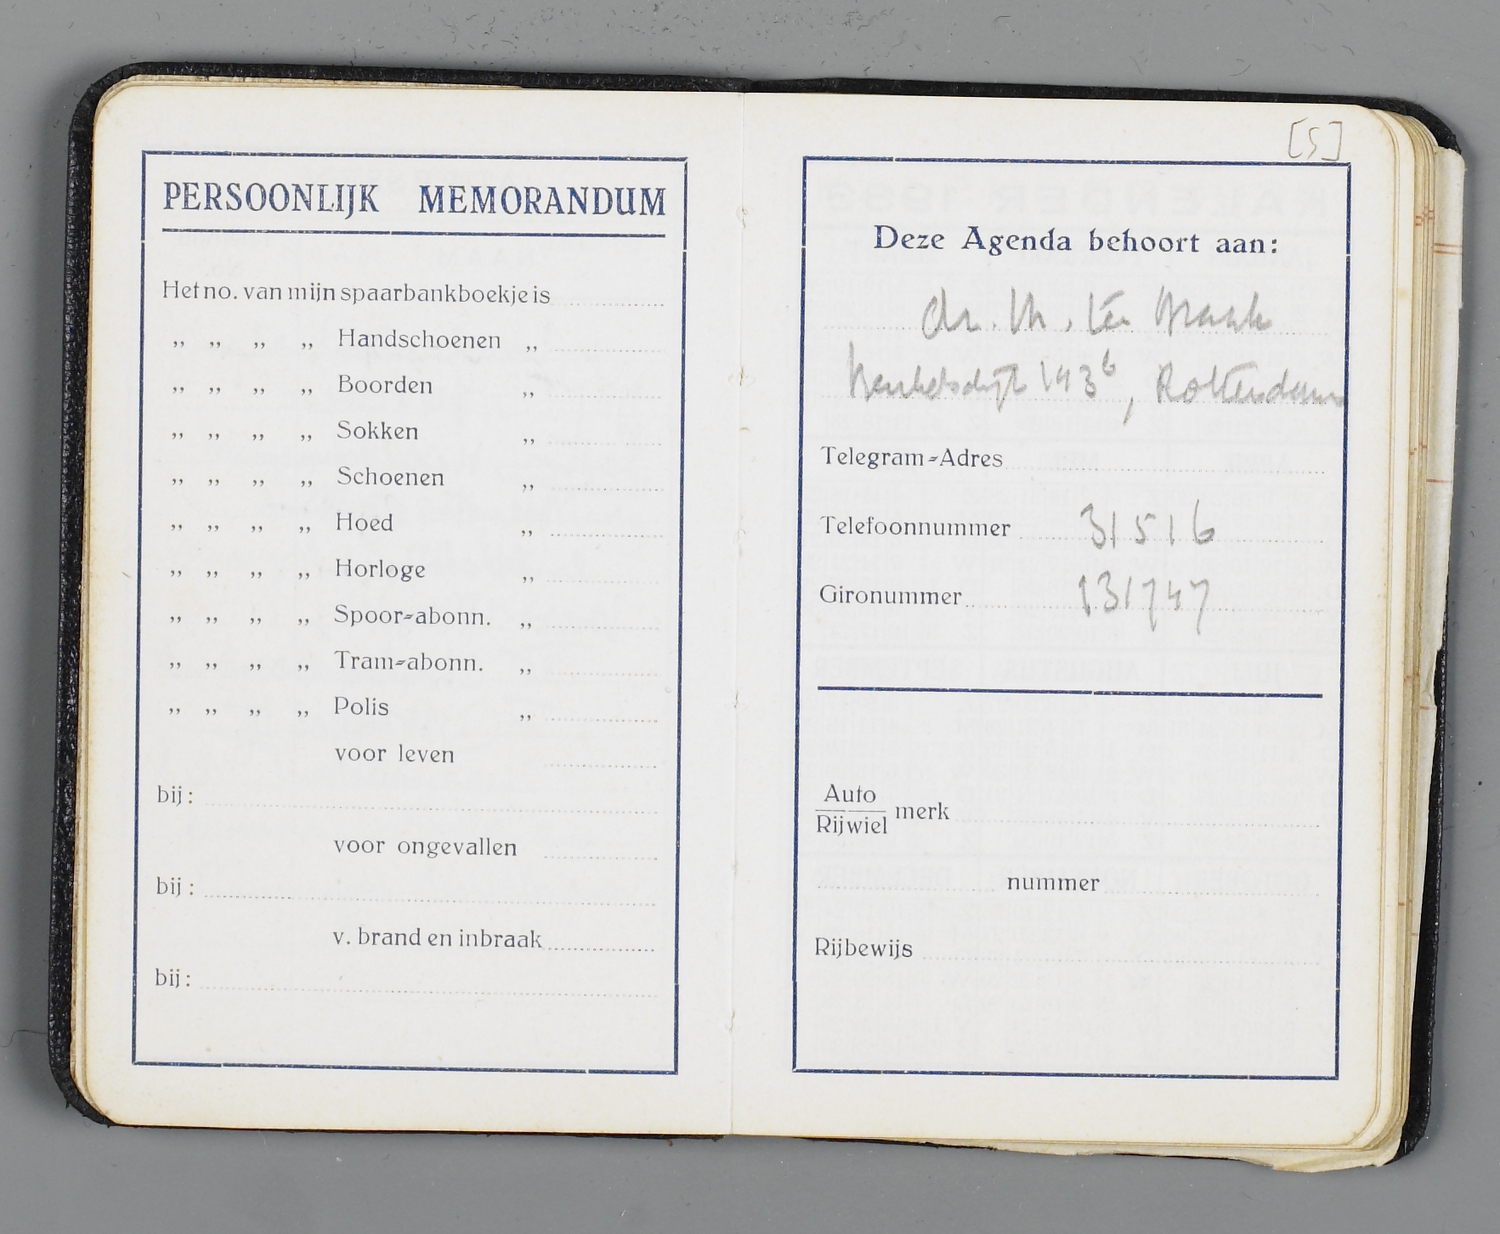 PERSOONLIJK MEMORANDUM
Het no. van mijn spaarbankboekje is
„ „ „ „ Handschoenen „
„ „ „ „ Boorden „
„ „ „ „ Sokken „
„ „ „ „ Schoenen „
„ „ „ „ Hoed „
„ „ „ „ Horloge „
„ „ „ „ Spoor-abonn. „
„ „ „ „ Tram-abonn. „
„ „ „ „ Polis „
voor leven
bij:
voor ongevallen
bij:
v. brand en inbraak
bij:
[5]
Deze Agenda behoort aan:
dr. M. ter Braak
Heukelsdijk 143b, Rotterdam
Telegram-Adres
Telefoonnummer 31516
Gironummer 131747
Auto
Rijwiel merk
nummer
Rijbewijs